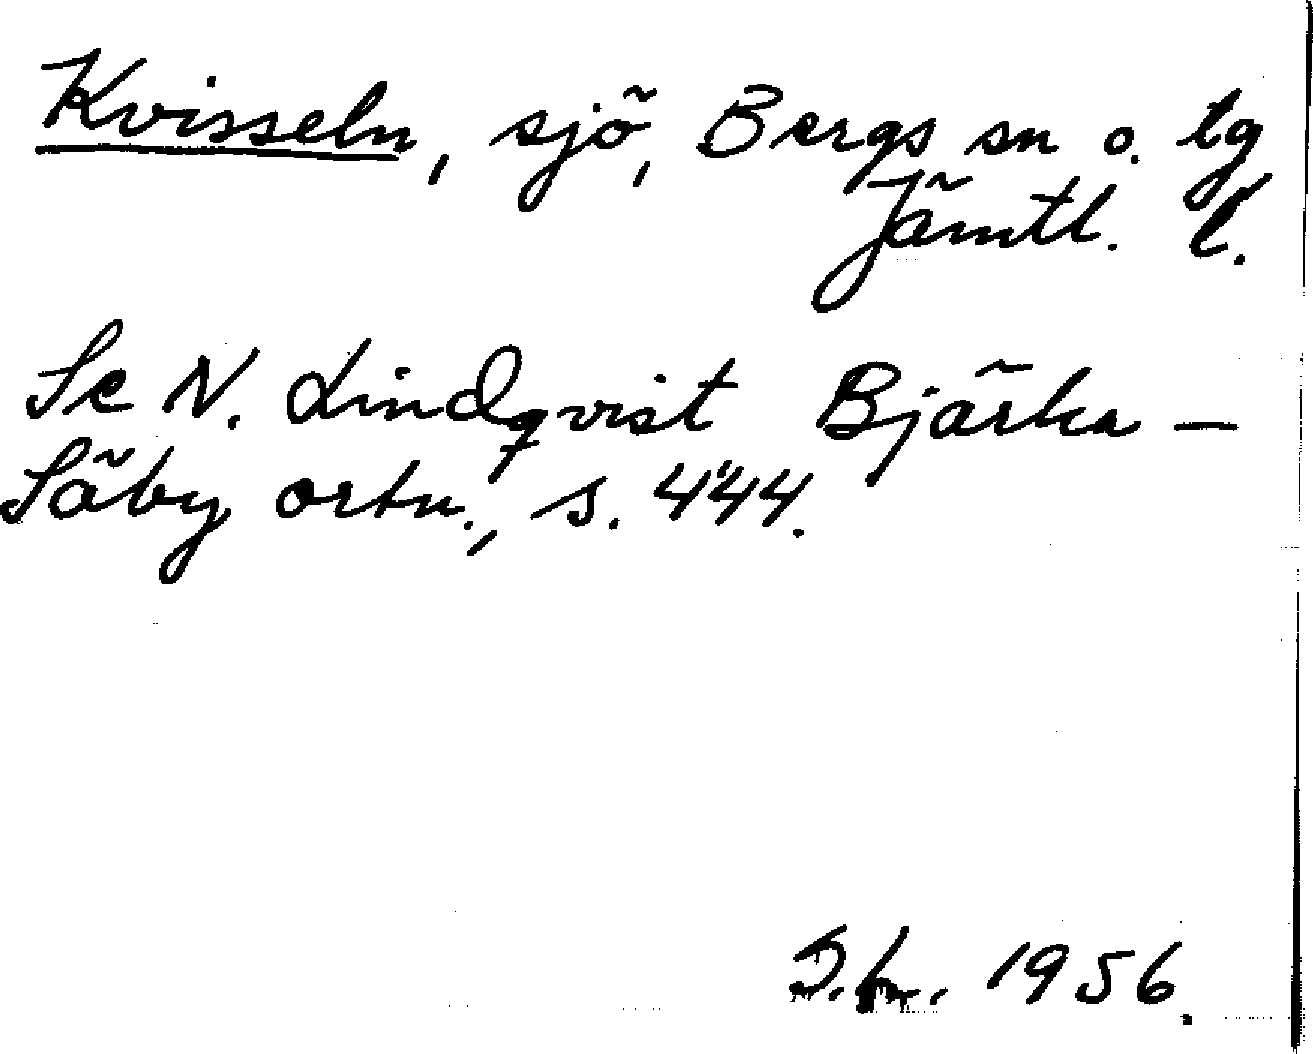 Kvisseln, sjö, Bergs sn o. tg
Jämtl. l.
Se N. Lindqvist Bjärka –
Säby ortn., s. 444.
1956.